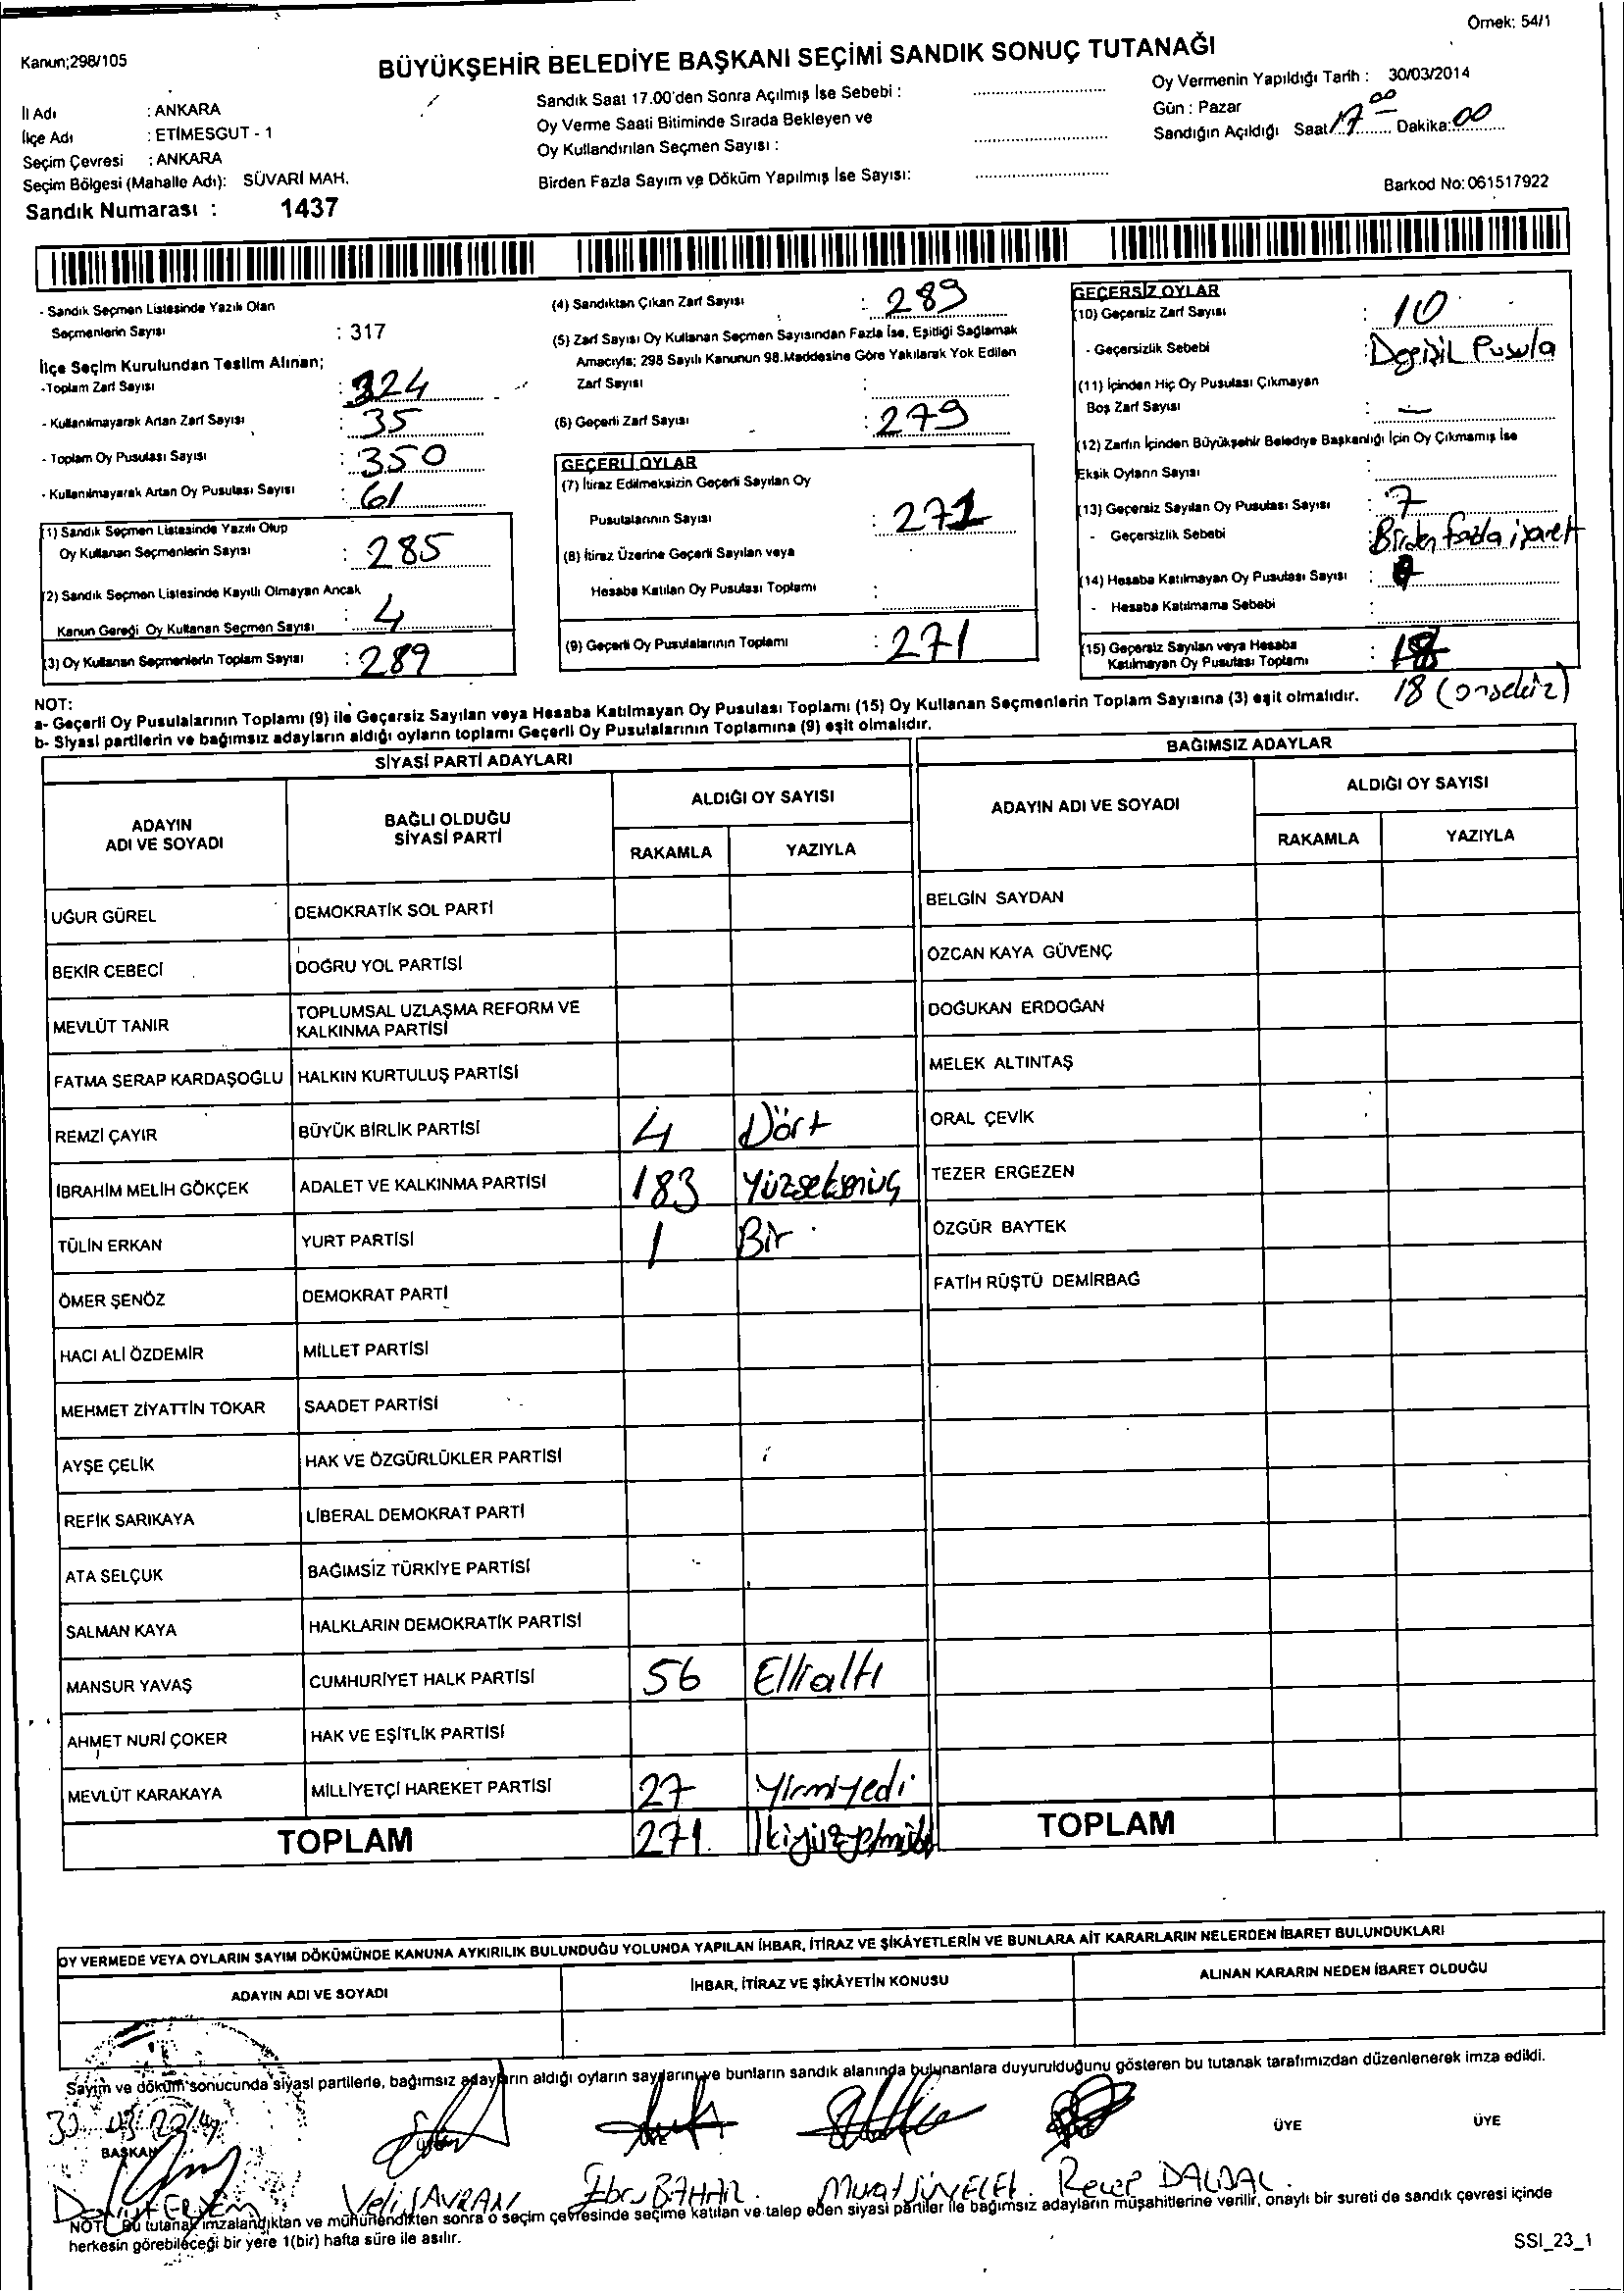 Örnek: 54/1
Kanun;298/105
BÜYÜKŞEHİR BELEDİYE BAŞKANI SEÇİMİ SANDIK SONUÇ TUTANAĞI
İl Adı : ANKARA
İlçe Adı : ETİMESGUT - 1
Seçim Çevresi : ANKARA
Seçim Bölgesi (Mahalle Adı): SÜVARİ MAH.
Sandık Numarası : 1437
Sandık Saat 17.00'den Sonra Açılmış İse Sebebi :
Oy Verme Saati Bitiminde Sırada Bekleyen ve
Oy Kullandırılan Seçmen Sayısı :
Birden Fazla Sayım ve Döküm Yapılmış İse Sayısı:
Oy Vermenin Yapıldığı Tarih : 30/03/2014
Gün : Pazar
Sandığın Açıldığı Saat 17 00 Dakika: 00
Barkod No: 061517922
- Sandık Seçmen Listesinde Yazılı Olan
Seçmenlerin Sayısı : 317
İlçe Seçim Kurulundan Teslim Alınan;
-Toplam Zarf Sayısı : 324
- Kullanılmayarak Artan Zarf Sayısı : 35
- Toplam Oy Pusulası Sayısı : 350
- Kullanılmayarak Artan Oy Pusulası Sayısı : 61
(1) Sandık Seçmen Listesinde Yazılı Olup
Oy Kullanan Seçmenlerin Sayısı : 285
(2) Sandık Seçmen Listesinde Kayıtlı Olmayan Ancak
Kanun Gereği Oy Kullanan Seçmen Sayısı : 4
(3) Oy Kullanan Seçmenlerin Toplam Sayısı : 289
(4) Sandıktan Çıkan Zarf Sayısı : 289
(5) Zarf Sayısı Oy Kullanan Seçmen Sayısından Fazla İse, Eşitliği Sağlamak
Amacıyla; 298 Sayılı Kanunun 98.Maddesine Göre Yakılarak Yok Edilen
Zarf Sayısı :
(6) Geçerli Zarf Sayısı : 279
GEÇERLİ OYLAR
(7) İtiraz Edilmeksizin Geçerli Sayılan Oy
Pusulalarının Sayısı : 271
(8) İtiraz Üzerine Geçerli Sayılan veya
Hesaba Katılan Oy Pusulası Toplamı :
(9) Geçerli Oy Pusulalarının Toplamı : 271
GEÇERSİZ OYLAR
(10) Geçersiz Zarf Sayısı : 10
- Geçersizlik Sebebi : Değişik Pusula
(11) İçinden Hiç Oy Pusulası Çıkmayan
Boş Zarf Sayısı : –
(12) Zarfın İçinden Büyükşehir Belediye Başkanlığı İçin Oy Çıkmamış İse
Eksik Oyların Sayısı :
(13) Geçersiz Sayılan Oy Pusulası Sayısı : 7
- Geçersizlik Sebebi : Birden fazla işaret
(14) Hesaba Katılmayan Oy Pusulası Sayısı :
- Hesaba Katılmama Sebebi :
(15) Geçersiz Sayılan veya Hesaba
Katılmayan Oy Pusulası Toplamı : 18
18 (onsekiz)
NOT:
a- Geçerli Oy Pusulalarının Toplamı (9) ile Geçersiz Sayılan veya Hesaba Katılmayan Oy Pusulası Toplamı (15) Oy Kullanan Seçmenlerin Toplam Sayısına (3) eşit olmalıdır.
b- Siyasi partilerin ve bağımsız adayların aldığı oyların toplamı Geçerli Oy Pusulalarının Toplamına (9) eşit olmalıdır.
SİYASİ PARTİ ADAYLARI
BAĞIMSIZ ADAYLAR
ADAYIN
ADI VE SOYADI
BAĞLI OLDUĞU
SİYASİ PARTİ
ALDIĞI OY SAYISI
RAKAMLA YAZIYLA
ADAYIN ADI VE SOYADI
ALDIĞI OY SAYISI
RAKAMLA YAZIYLA
UĞUR GÜREL DEMOKRATİK SOL PARTİ BELGİN SAYDAN
BEKİR CEBECİ DOĞRU YOL PARTİSİ ÖZCAN KAYA GÜVENÇ
MEVLÜT TANIR TOPLUMSAL UZLAŞMA REFORM VE
KALKINMA PARTİSİ DOĞUKAN ERDOĞAN
FATMA SERAP KARDAŞOĞLU HALKIN KURTULUŞ PARTİSİ MELEK ALTINTAŞ
REMZİ ÇAYIR BÜYÜK BİRLİK PARTİSİ 4 Dört ORAL ÇEVİK
İBRAHİM MELİH GÖKÇEK ADALET VE KALKINMA PARTİSİ 183 Yüzseksenüç TEZER ERGEZEN
TÜLİN ERKAN YURT PARTİSİ 1 Bir ÖZGÜR BAYTEK
ÖMER ŞENÖZ DEMOKRAT PARTİ FATİH RÜŞTÜ DEMİRBAĞ
HACI ALİ ÖZDEMİR MİLLET PARTİSİ
MEHMET ZİYATTİN TOKAR SAADET PARTİSİ
AYŞE ÇELİK HAK VE ÖZGÜRLÜKLER PARTİSİ
REFİK SARIKAYA LİBERAL DEMOKRAT PARTİ
ATA SELÇUK BAĞIMSIZ TÜRKİYE PARTİSİ
SALMAN KAYA HALKLARIN DEMOKRATİK PARTİSİ
MANSUR YAVAŞ CUMHURİYET HALK PARTİSİ 56 Ellialtı
AHMET NURİ ÇOKER HAK VE EŞİTLİK PARTİSİ
MEVLÜT KARAKAYA MİLLİYETÇİ HAREKET PARTİSİ 27 Yirmiyedi
TOPLAM 271 İkiyüzyetmişbir TOPLAM
OY VERMEDE VEYA OYLARIN SAYIM DÖKÜMÜNDE KANUNA AYKIRILIK BULUNDUĞU YOLUNDA YAPILAN İHBAR, İTİRAZ VE ŞİKÂYETLERİN VE BUNLARA AİT KARARLARIN NELERDEN İBARET BULUNDUKLARI
ADAYIN ADI VE SOYADI İHBAR, İTİRAZ VE ŞİKÂYETİN KONUSU ALINAN KARARIN NEDEN İBARET OLDUĞU
Sayım ve döküm sonucunda siyasi partilerle, bağımsız adayların aldığı oyların sayılarını ve bunların sandık alanında bulunanlara duyurulduğunu gösteren bu tutanak tarafımızdan düzenlenerek imza edildi.
30 03 2014
BAŞKAN ÜYE ÜYE ÜYE ÜYE
Veli SAVRAN Ebru BAHAR Recep DALDAL
NOT: Bu tutanak imzalandıktan ve mühürlendikten sonra o seçim çevresinde seçime katılan ve talep eden siyasi partiler ile bağımsız adayların müşahitlerine verilir, onaylı bir sureti de sandık çevresi içinde
herkesin görebileceği bir yere 1(bir) hafta süre ile asılır.
SSI_23_1